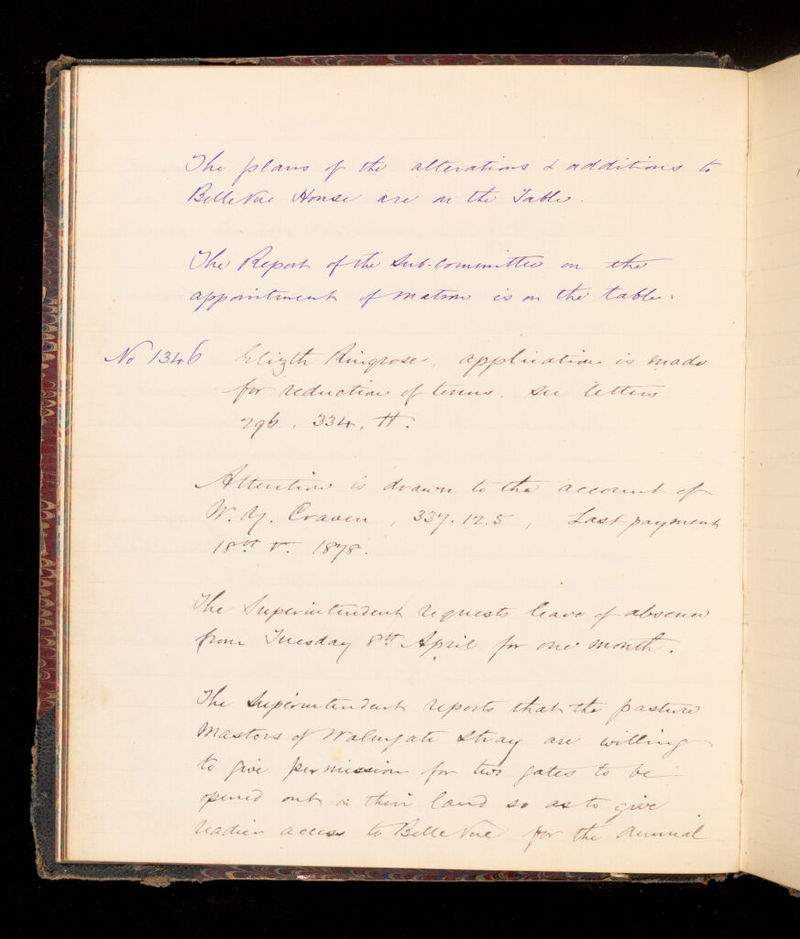 The plans of the alterations & additions to
Belle Vue House are on the Table.
The Report of the Sub-Committee on the
appointment of Matron is on the table.
No 1346 Elizth Ringrose, application is made
for reduction of terms. See letters
296. 334. H.
Attention is drawn to the account of
W. Y. Craven, 337.12.5, Last payment
18th V. 1878.
The Superintendent requests leave of absence
from Tuesday 8th April for one month.
The Superintendent reports that the pasture
Masters of Walmgate Stray are willing
to give permission for two gates to be
opened out on their land so as to give
readier access to Belle Vue for the annual